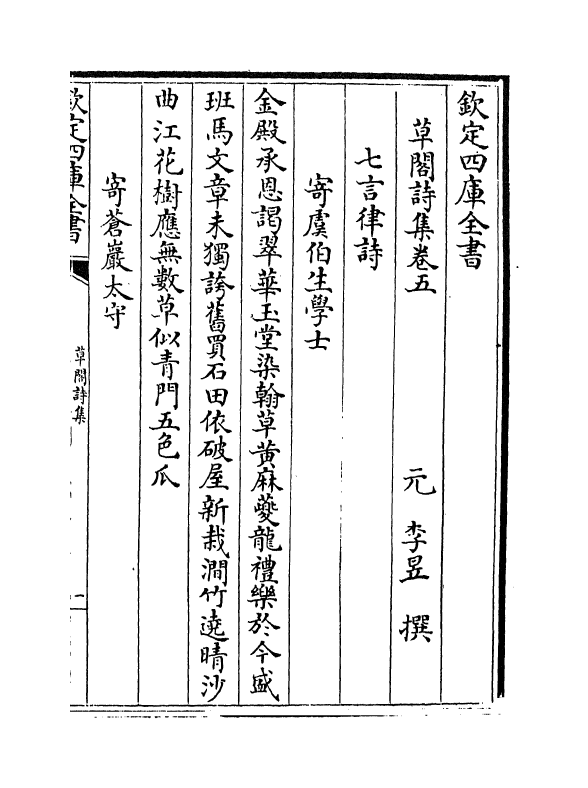 欽定四庫全書
草閣詩集卷五
元　李昱　撰
七言律詩
寄虞伯生學士
金殿承恩謁翠華玉堂染翰草黄麻夔龍禮樂於今盛
班馬文章未獨誇舊買石田依破屋新栽澗竹遶晴沙
曲江花樹應無數草似青門五色瓜
寄蒼巖太守
欽定四庫全書
草閣詩集
一